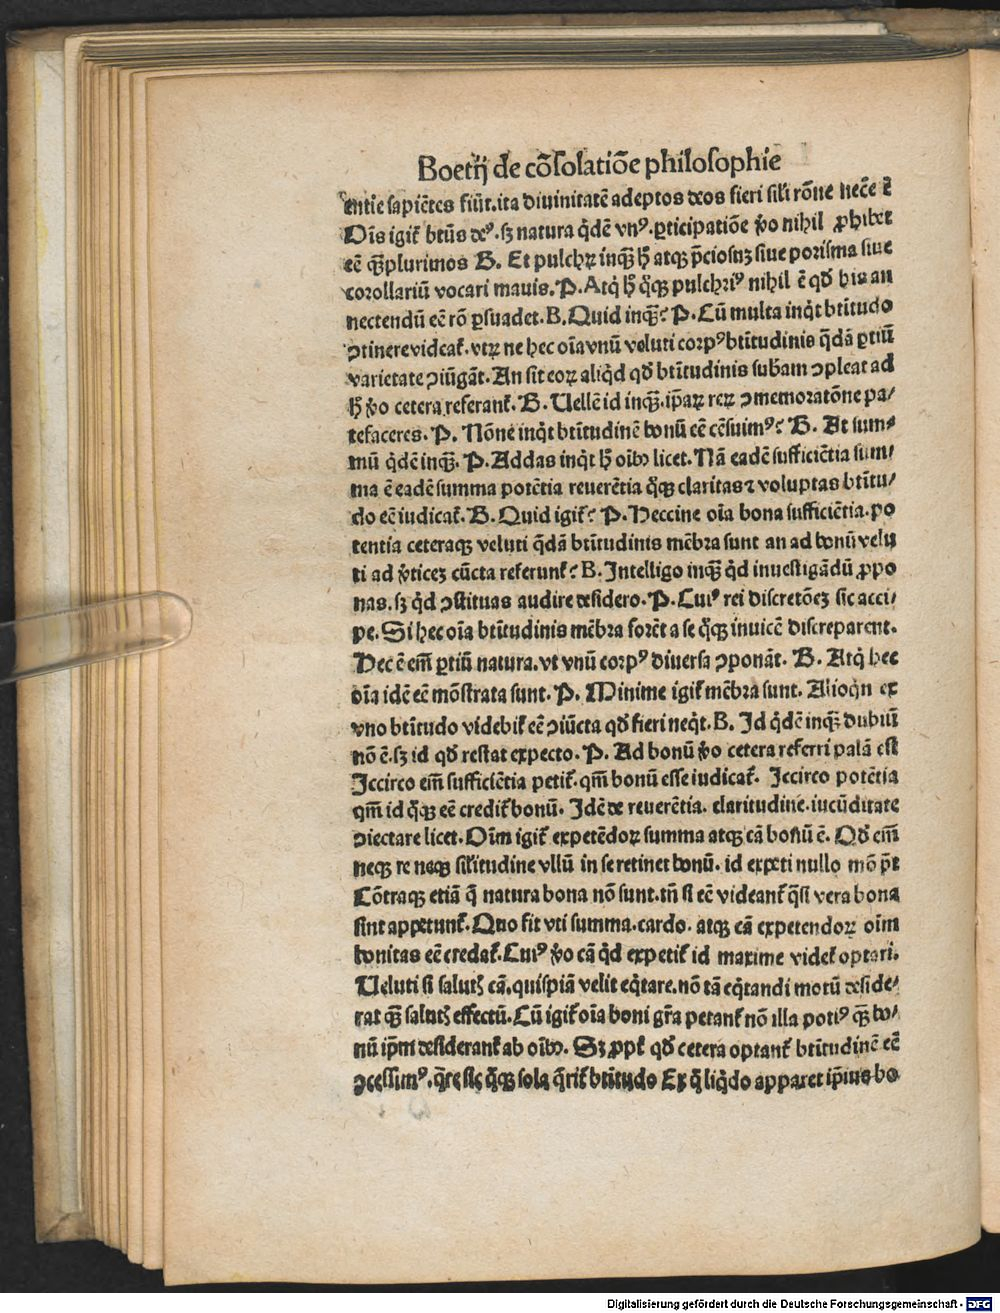 Boetij de cōsolatiōe philosophie
entie sapiētes fiūt. ita diuinitatē adeptos deos fieri sili rōne necē ē
Oīs igit̄ btūs deꝰ. sꝫ natura q̇dē vnꝰ. ꝑticipatiōe ꝟo nihil ꝓhibet
eē qꝫ̄plurimos B. Et pulchꝝ inqꝫ̄ hꝰ atqꝫ p̄ciosuꝫ siue porisma siue
corollariū vocari mauis. P. Atq̇ hꝰ q̊qꝫ pulchriꝰ nihil ē qđ his an
nectendū eē rō ꝑsuadet. B. Quid inqꝫ̄? P. Cū multa inq̇t btītudo
ꝯtinere videat̄. vtꝝ ne hec oīa vnū veluti corpꝰ btītudinis q̄dā ꝑtiū
varietate ꝯiūgāt. An sit eoꝝ aliq̇d qđ btītudinis subām ꝯpleat ad
hꝰ ꝟo cetera referant̄. B. Uellē id inqꝫ̄. ip̄aꝝ reꝝ ꝯmemoratōne pa/
tefaceres. P. Nōne inq̇t btītudinē bonū eē cēsuimꝰ? B. At sum/
mū q̇dē inqꝫ̄. P. Addas inq̇t hꝰ oībꝰ licet. Nā eadē sufficiētia sum/
ma ē eadē summa potētia reuerētia q̊qꝫ claritas ⁊ voluptas btītu/
do eē iudicat̄. B. Quid igit̄? P. Heccine oīa bona sufficiētia. po
tentia ceteraqꝫ veluti q̄dā btītudinis mēbra sunt an ad bonū velu
ti ad ꝟticeꝫ cūcta referunt̄? B. Intelligo inqꝫ̄ q̇d inuestigādū ꝓpo
nas. sꝫ q̇d ꝯstituas audire desidero. P. Cuiꝰ rei discretōeꝫ sic acci/
pe. Si hec oīa btītudinis mēbra forēt a se q̊qꝫ inuicē discreparent.
Hec ē em̄ ꝑtiū natura. vt vnū corpꝰ diuersa ꝯponāt. B. Atq̇ hec
oīa idē eē mōstrata sunt. P. Minime igit̄ mēbra sunt. Alioq̇n ex
vno btītudo videbit̄ eē ꝯiūcta qđ fieri neq̇t. B. Id q̇dē inqꝫ̄ dubiū
nō ē. sꝫ id qđ restat expecto. P. Ad bonū ꝟo cetera referri palā est
Iccirco em̄ sufficiētia petit̄. qm̄ bonū esse iudicat̄. Iccirco potētia
qm̄ id q̊qꝫ eē credit̄ bonū. Idē de reuerētia. claritudine. iucūditate
ꝯiectare licet. Oīm igit̄ expetēdoꝝ summa atqꝫ cā bonū ē. Qđ em̄
neqꝫ re neqꝫ silitudine vllū in se retinet bonū. id expeti nullo mō p̄t
Cōtraqꝫ etiā q̄ natura bona nō sunt. tn̄ si eē videant̄ q̄si vera bona
sint appetunt̄. Quo fit vti summa. cardo. atqꝫ cā expetendoꝝ oīm
bonitas eē credat̄. Cuiꝰ ꝟo cā q̇d expetit̄ id maxime videt̄ optari.
Ueluti si salutꝭ cā. quispiā velit eq̇tare. nō tā eq̇tandi motū deside/
rat qꝫ̄ salutꝭ effectū. Cū igit̄ oīa boni gr̄a petant̄ nō illa potiꝰ qꝫ̄ bo/
nū ip̄m desiderant̄ ab oībꝰ. Sꝫ ꝓpt̄ qđ cetera optant̄ btītudinē eē
ꝯcessimꝰ. q̄re sic q̊qꝫ sola q̄rit̄ btītudo Ex q̊ liq̇do apparet ip̄ius bo
Digitalisierung gefördert durch die Deutsche Forschungsgemeinschaft - DFG